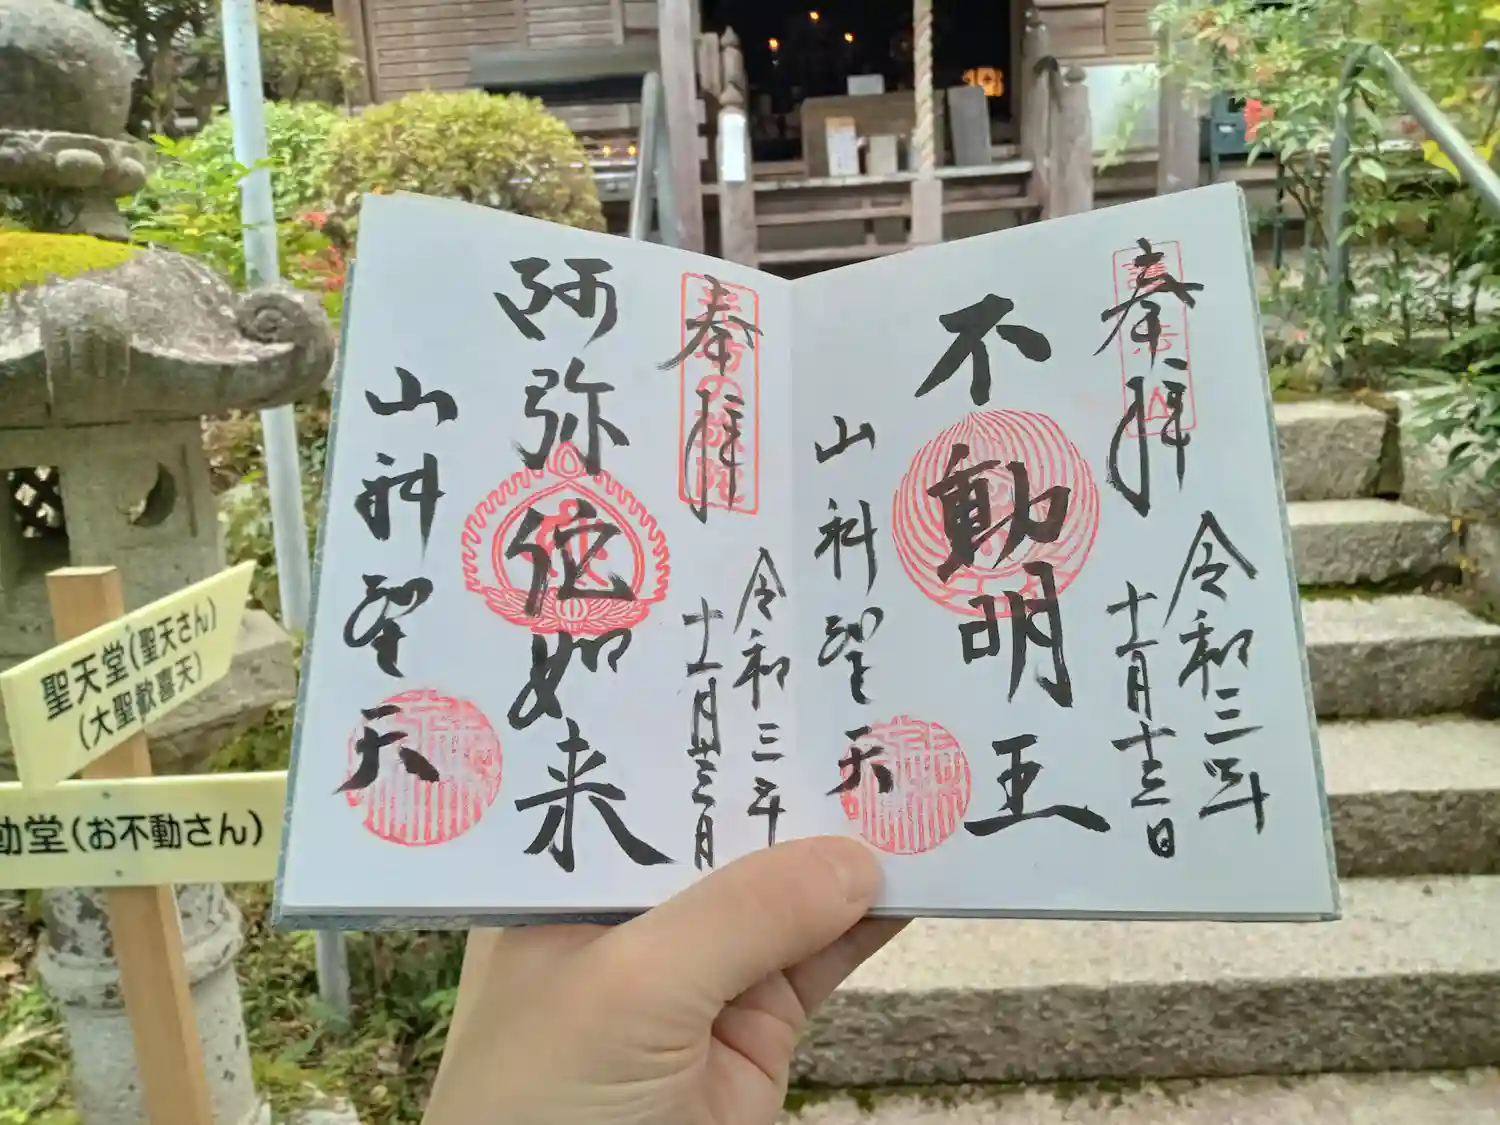 奉拝
令和三年
十一月十三日
不動明王
山科聖天
奉拝
令和三年
阿弥佗如来
山科聖天
聖天堂(聖天さん)
(大聖歓喜天)
動堂(お不動さん)